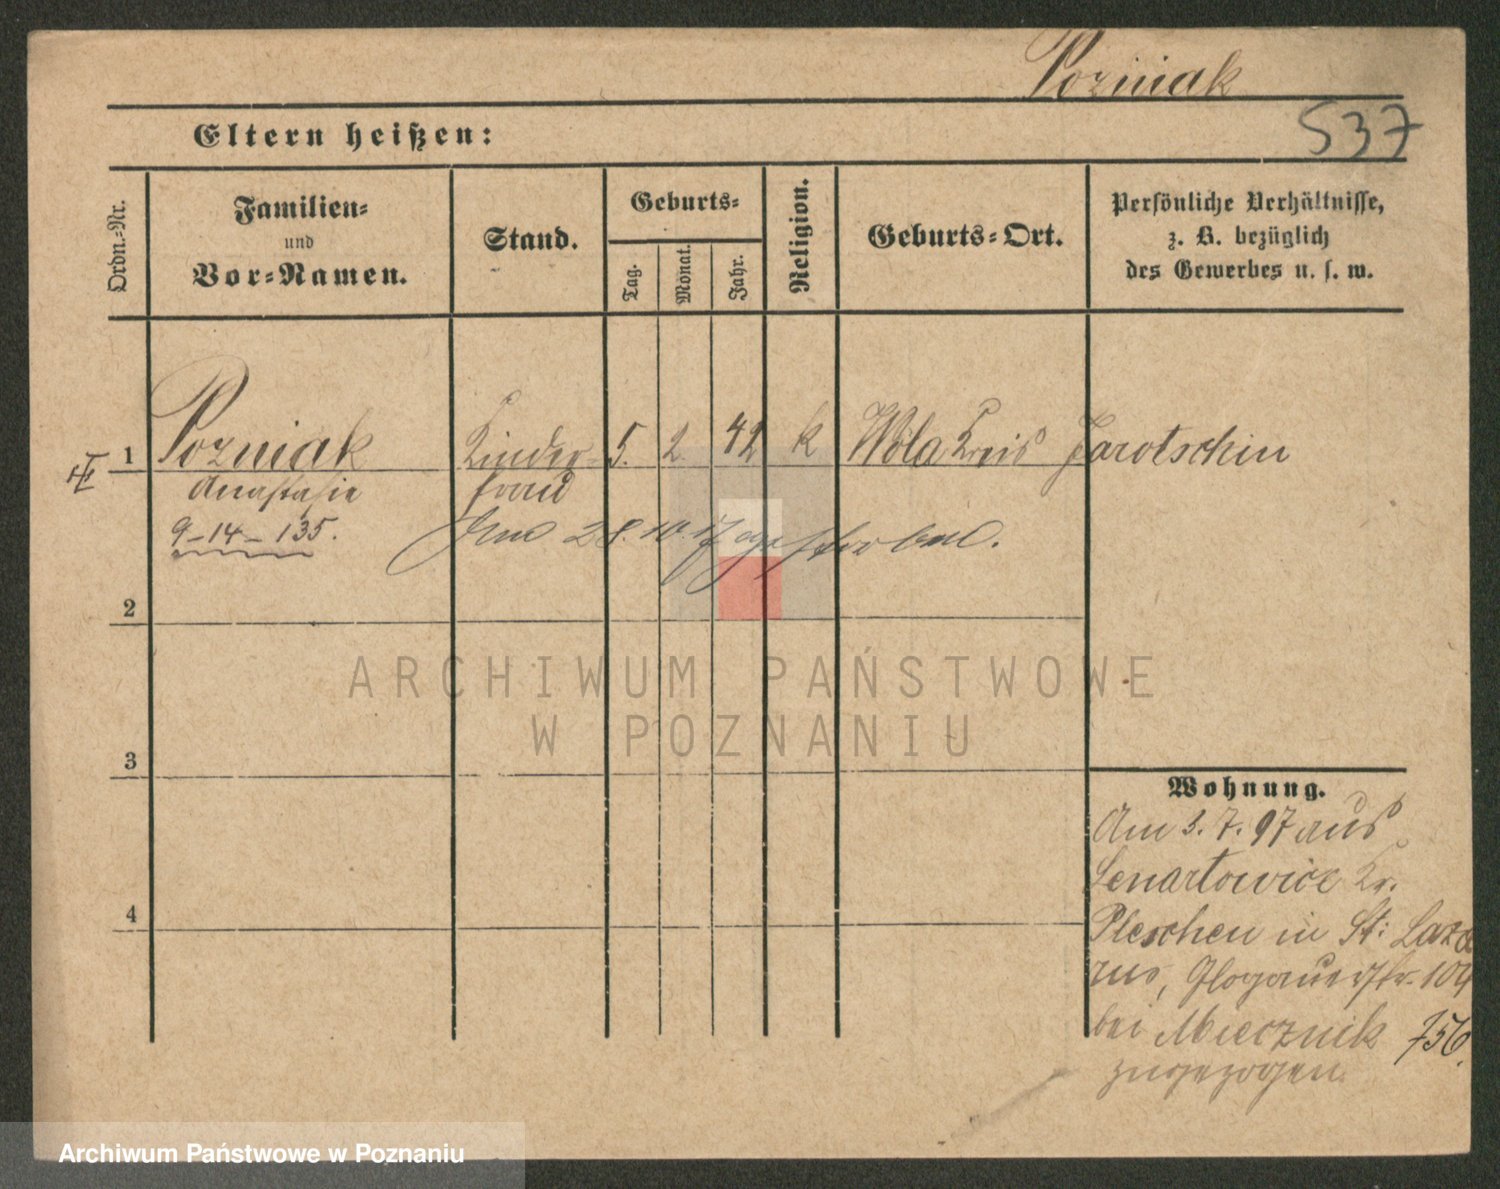 Pozniak
537
Eltern heißen:
Ordn.-Nr.
Familien-
und
Vor-Namen.
Stand.
Geburts-
Tag.
Monat.
Jahr.
Religion.
Geburts-Ort.
Persönliche Verhältnisse,
z. B. bezüglich
des Gewerbes u. s. w.
1 Pozniak Kinder- 5. 2 42 k Wola Kreis Jarotschin
Anastasie frau
9-14-135. 28.10.17 gestorben.
2
ARCHIWUM PAŃSTWOWE
W POZNANIU
3
4
Wohnung.
Am 3.7.97 aus
Lenartowice Kr.
Pleschen in St: Laza
rus, Glogauerstr. 104
bei Miecznik 756.
zugezogen.
Archiwum Państwowe w Poznaniu